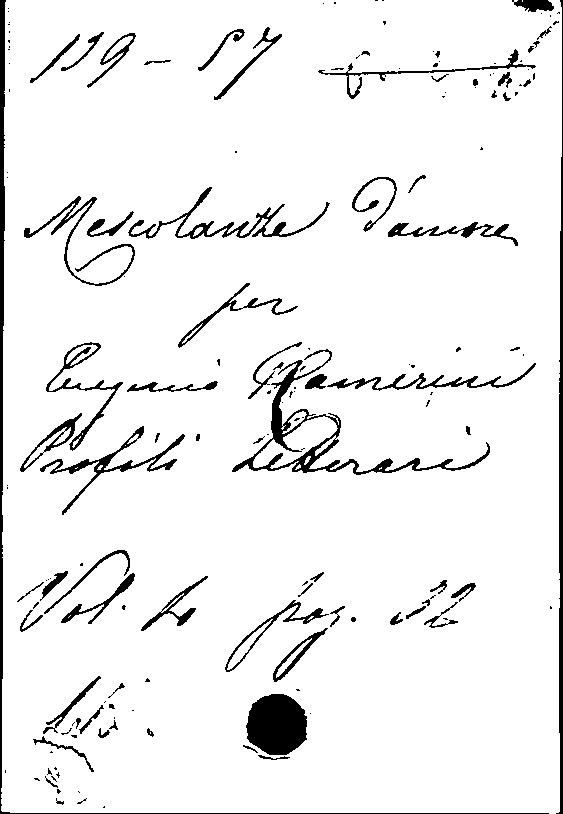 139 - 57
Mescolanze d'amore
per
Eugenio Camerini
Profili Letterari
Vol. 4 pag. 32